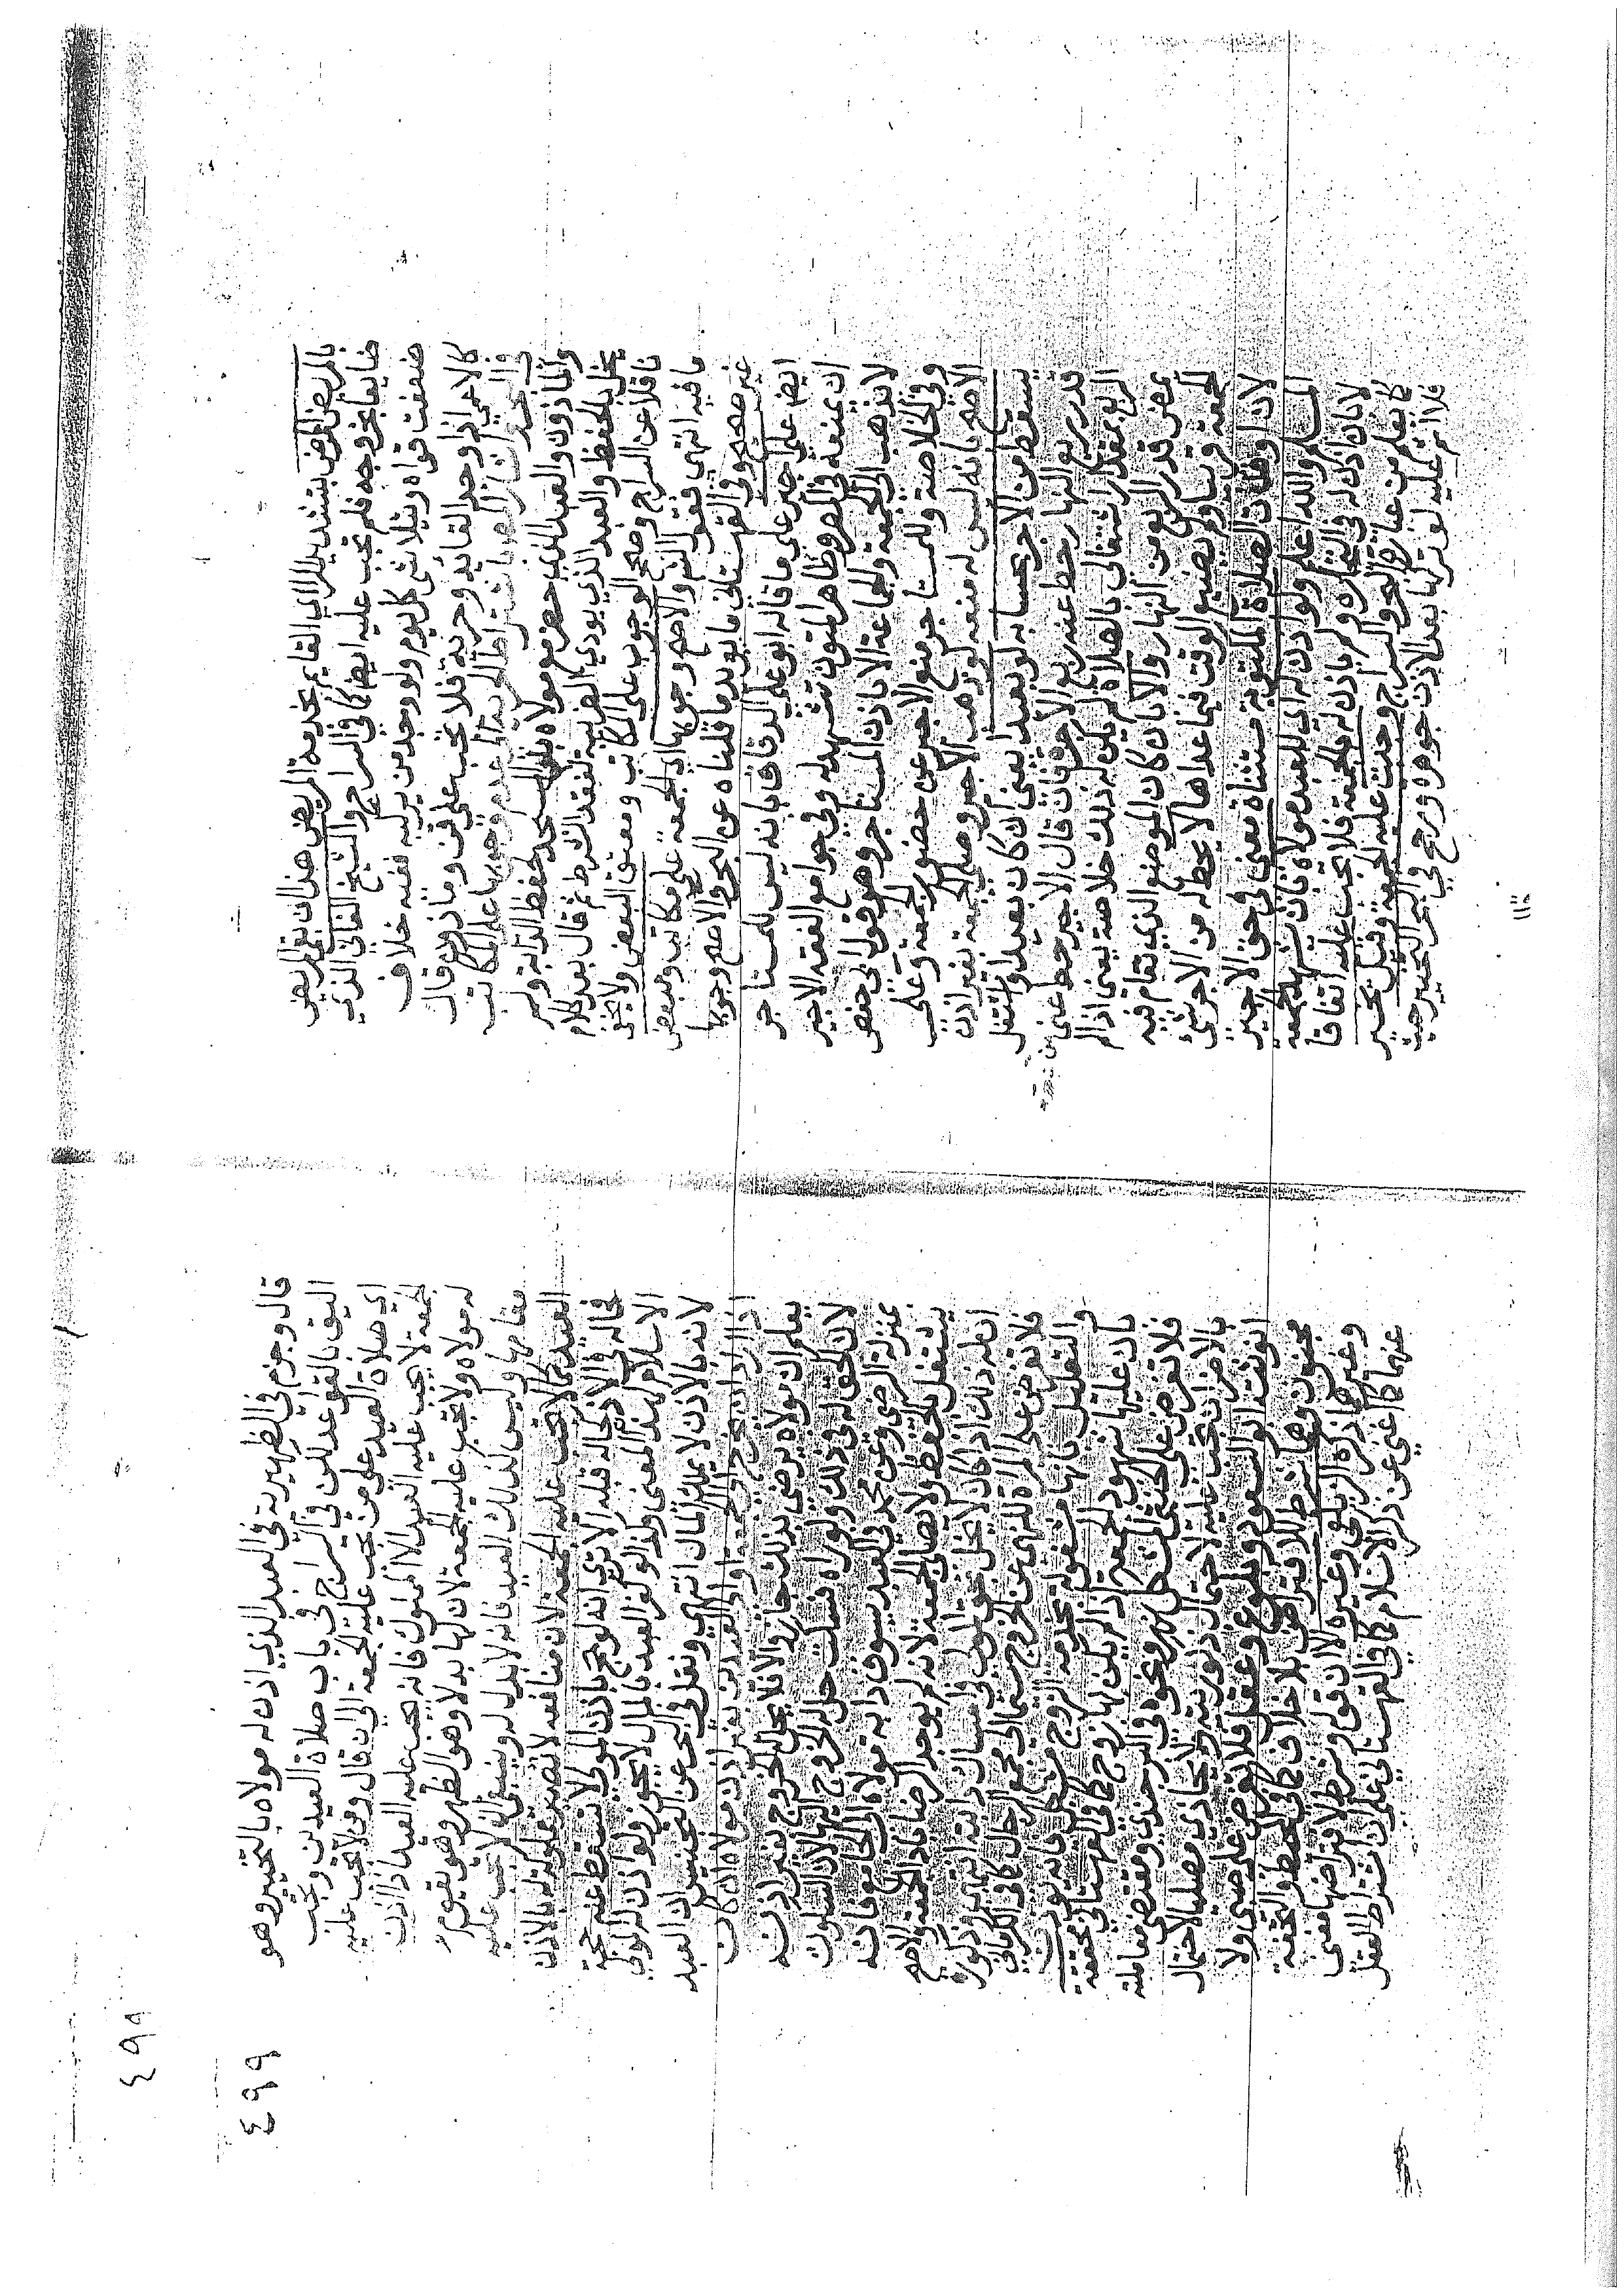 بالمريض الممرض بتشديد الراء اي القايم بخدمة المريض هذا ان بقي المريض
ضايعا بخروجه فلم تجب عليه ايضا كما في السراج والشيخ الفاني الذي
ضعفت قواه ويتلاشى كل يوم ولو وجد من يركبه ففيه خلاف
كالاعمى اذا وجد القايد وحرية فلا تجب على قن ومأذون قال
في البحر اشار المص باشتراط الحرية الى عدم وجوبها على المكاتب
والمأذون والعبد الذي حضر مع مولاه باب المسجد لحفظ الدابة ولم
يخل بالحفظ والعبد الذي يودي الضريبة لفقد الشرط ثم قال بعد كلام
ناقلا عن السراج وصحح الوجوب على المكاتب ومعتق البعض ولا يخفى
ما فيه انتهى فقول الش والاصح وجوبها اي الجمعة على مكاتب ومبعض
غير صحيح وفي القهستاني ما يويد ما قلناه عن البحر والاصح وجوبها
ايضا على اجير على ما قاله ابو علي الدقاق بانه ليس للمستاجر
ان يمنعه في المصر وظاهر المتون تشهد له وفي جوامع الفقه الاجير
لا يذهب الى الجمعة والجماعة الا باذن المستاجر وهو قول ابي حفص
وفي الخلاصة وللمستاجر منع الاجير عن حضور الجمعة وعلى
الاصح بانه ليس له منعه لو ذهب الاجير وصلى الجمعة بغير اذن
يسقط من الاجر بحسابه لو بعيدا يعني ان كان بعيدا واشتغل
قدر ربع النهار حط عنه ربع الاجرة فان قال الاجير حط عني
الربع بمقدار اشتغالي بالصلاة لم يكن له ذلك خلاصة يعني اذا لم
يمض قدر الربع من النهار والا بان كان الموضع الذي تقام فيه
الجمعة قريبا ولم يضيع الوقت فيما عداها لا يحط له من الاجر شي
لان اوقات الصلاة المكتوبة مستثناة معنى في حق الاجير
المسلم والله اعلم ولو اذن له اي للعبد مولاه بان يشهد الجمعة
لا بان اذن له في التجارة ولم ياذن له بالجمعة فلا تجب عليه اتفاقا
كما يعلم من عبارة البحر والسراج وجبت عليه الجمعة وقيل يخير
فلا اثم عليه لو تركها بعد الاذن جوهره ورجح في البحر التخيير حيث
قال وجزم في الظهيرية في العبد الذي اذن له مولاه بالتخيير وهو
اليق بالقواعد لكن في السراج في باب صلاة العيدين وتجب
اي صلاة العيد على من تجب عليه الجمعة الى ان قال ومن لا تجب عليه
الجمعة لا تجب عليه العيد الا المملوك فانه يجب عليه العيد اذا اذن
له مولاه ولا تجب عليه الجمعة لان لها بدلا وهو الظهر وهو يقوم
مقامها وليس كذلك العيد فانه لا بدل له وينبغي ان لا تجب عليه
العيد كما لا تجب عليه الجمعة لان منافعه لا تصير مملوكة له بالاذن
فحاله بعد الاذن كحاله قبله الا ترى انه لو حج باذن المولى لا تسقط عنه حجة
الاسلام لهذا المعنى وكذا لو كفر العبد بالمال لا يجوز ولو اذن له المولى
لانه بالاذن لا يملك المال انتهى ونقل في البحر عن التجنيس ان العبد
اذا اراد ان يخرج الى الجمعة او الى العيدين بغير اذن مولاه ان كان
يعلم ان مولاه يرضى بذلك جاز والا فلا يحل له الخروج بغير اذنه
لان الحق له في ذلك ولو راه فسكت حل له الخروج اليها لان السكوت
بمنزلة الرضى وعن محمد في العبد يسوق دابة مولاه الى الجامع فانه
يشتغل بالحفظ ولا يصلي الجمعة لانه لم يوجد الرضا باداء الجمعة والاصح
ان له ذلك اذا كان لا يخل بحق المولى في امساك دابته انتهى وذكورة
فلا تفرض على المراة للنهي عن الخروج سيما الى مجمع الرجال كما في الكرماني
والتعليل بانها مشغولة بخدمة الزوج مشكل فانه يوذن
بان عليها شهود الجمعة اذا لم يكن لها زوج كما في القهستاني محققة
فلا تفرض على الخنثى المشكل نهر ونحوه في البرجندي ومقتضى معاملته
بالاضر ان تجب عليه لاحتمال ذكورته ولا يحاذي مصليا لاحتمال
انوثته ابو السعود وبلوغ وعقل فلا تفرض على صبي ولا
مجنون وهما شرط للافتراض بلا خلاف كما في المحيط والتحفة
وغيرهما ذكره الزيلعي وغيره الا ان قولهم وشرط لافتراضها معنى
عنهما كما اغنى عن ذكر الاسلام كما في القهستاني على ان اشتراط العقل
٤٩٩
٤٩٩